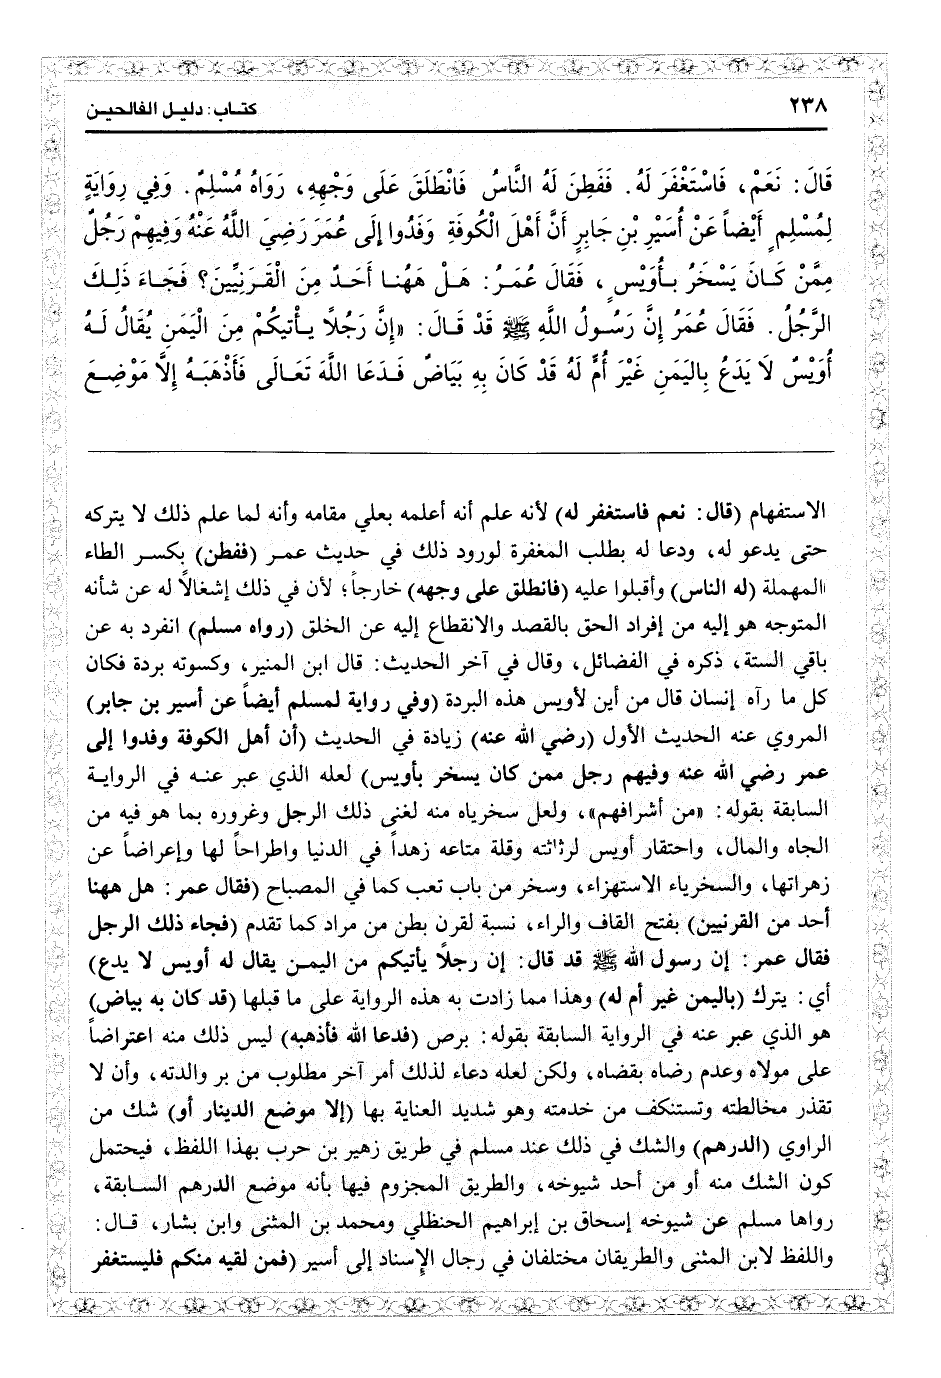 ٢٣٨
كتاب: دليل الفالحين
قَالَ: نَعَمْ، فَاسْتَغْفَرَ لَهُ. فَفَطِنَ لَهُ النَّاسُ فَانْطَلَقَ عَلَى وَجْهِهِ، رَوَاهُ مُسْلِمٌ. وَفِي رِوَايَةٍ
لِمُسْلِمٍ أَيْضاً عَنْ أُسَيْرِ بْنِ جَابِرٍ أَنَّ أَهْلَ الْكُوفَةِ وَفَدُوا إِلَى عُمَرَ رَضِيَ اللَّهُ عَنْهُ وَفِيهِمْ رَجُلٌ
مِمَّنْ كَانَ يَسْخَرُ بِأُوَيْسٍ، فَقَالَ عُمَرُ: هَلْ هَهُنَا أَحَدٌ مِنَ الْقَرَنِيِّينَ؟ فَجَاءَ ذَلِكَ
الرَّجُلُ. فَقَالَ عُمَرُ إِنَّ رَسُولَ اللَّهِ ﷺ قَدْ قَالَ: «إِنَّ رَجُلاً يَأْتِيكُمْ مِنَ الْيَمَنِ يُقَالُ لَهُ
أُوَيْسٌ لَا يَدَعُ بِالْيَمَنِ غَيْرَ أُمٍّ لَهُ قَدْ كَانَ بِهِ بَيَاضٌ فَدَعَا اللَّهَ تَعَالَى فَأَذْهَبَهُ إِلَّا مَوْضِعَ
الاستفهام (قال: نعم فاستغفر له) لأنه علم أنه أعلمه بعلي مقامه وأنه لما علم ذلك لا يتركه
حتى يدعو له، ودعا له بطلب المغفرة لورود ذلك في حديث عمر (ففطن) بكسر الطاء
المهملة (له الناس) وأقبلوا عليه (فانطلق على وجهه) خارجاً؛ لأن في ذلك إشغالاً له عن شأنه
المتوجه هو إليه من إفراد الحق بالقصد والانقطاع إليه عن الخلق (رواه مسلم) انفرد به عن
باقي الستة، ذكره في الفضائل، وقال في آخر الحديث: قال ابن المنير، وكسوته بردة فكان
كل ما رآه إنسان قال من أين لأويس هذه البردة (وفي رواية لمسلم أيضاً عن أسير بن جابر)
المروي عنه الحديث الأول (رضي الله عنه) زيادة في الحديث (أن أهل الكوفة وفدوا إلى
عمر رضي الله عنه وفيهم رجل ممن كان يسخر بأويس) لعله الذي عبر عنه في الرواية
السابقة بقوله: «من أشرافهم»، ولعل سخرياه منه لغنى ذلك الرجل وغروره بما هو فيه من
الجاه والمال، واحتقار أويس لرثاثته وقلة متاعه زهداً في الدنيا واطراحاً لها وإعراضاً عن
زهراتها، والسخرياء الاستهزاء، وسخر من باب تعب كما في المصباح (فقال عمر: هل ههنا
أحد من القرنيين) بفتح القاف والراء، نسبة لقرن بطن من مراد كما تقدم (فجاء ذلك الرجل
فقال عمر: إن رسول الله ﷺ قد قال: إن رجلاً يأتيكم من اليمن يقال له أويس لا يدع)
أي: يترك (باليمن غير أم له) وهذا مما زادت به هذه الرواية على ما قبلها (قد كان به بياض)
هو الذي عبر عنه في الرواية السابقة بقوله: برص (فدعا الله فأذهبه) ليس ذلك منه اعتراضاً
على مولاه وعدم رضاه بقضاه، ولكن لعله دعاء لذلك أمر آخر مطلوب من بر والدته، وأن لا
تقذر مخالطته وتستنكف من خدمته وهو شديد العناية بها (إلا موضع الدينار أو) شك من
الراوي (الدرهم) والشك في ذلك عند مسلم في طريق زهير بن حرب بهذا اللفظ، فيحتمل
كون الشك منه أو من أحد شيوخه، والطريق المجزوم فيها بأنه موضع الدرهم السابقة،
رواها مسلم عن شيوخه إسحاق بن إبراهيم الحنظلي ومحمد بن المثنى وابن بشار، قال:
واللفظ لابن المثنى والطريقان مختلفان في رجال الإسناد إلى أسير (فمن لقيه منكم فليستغفر